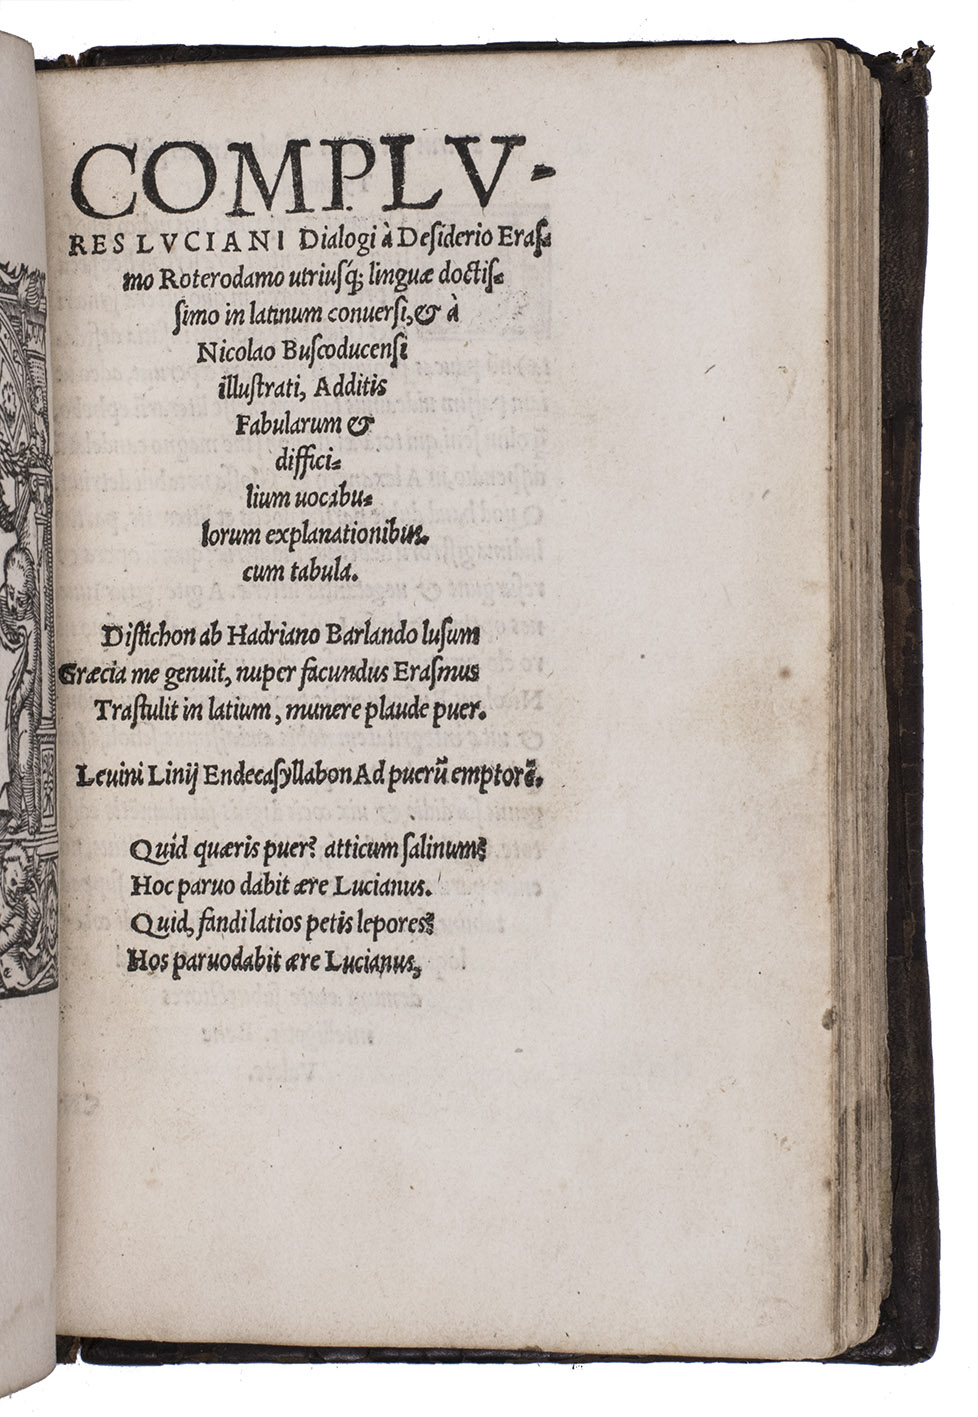 COMPLV-
RES LVCIANI Dialogi à Desiderio Eras-
mo Roterodamo utriusq́; linguæ doctis-
simo in latinum conuersi, & à
Nicolao Buscoducensi
illustrati, Additis
Fabularum &
diffici-
lium uocabu-
lorum explanationibus.
cum tabula.
Distichon ab Hadriano Barlando lusum
Græcia me genuit, nuper facundus Erasmus
Trastulit in latium, munere plaude puer.
Leuini Linij Endecasyllabon Ad puerū emptorē.
Quid quæris puer? atticum salinum?
Hoc paruo dabit ære Lucianus.
Quid, fandi latios petis lepores?
Hos paruodabit ære Lucianus,